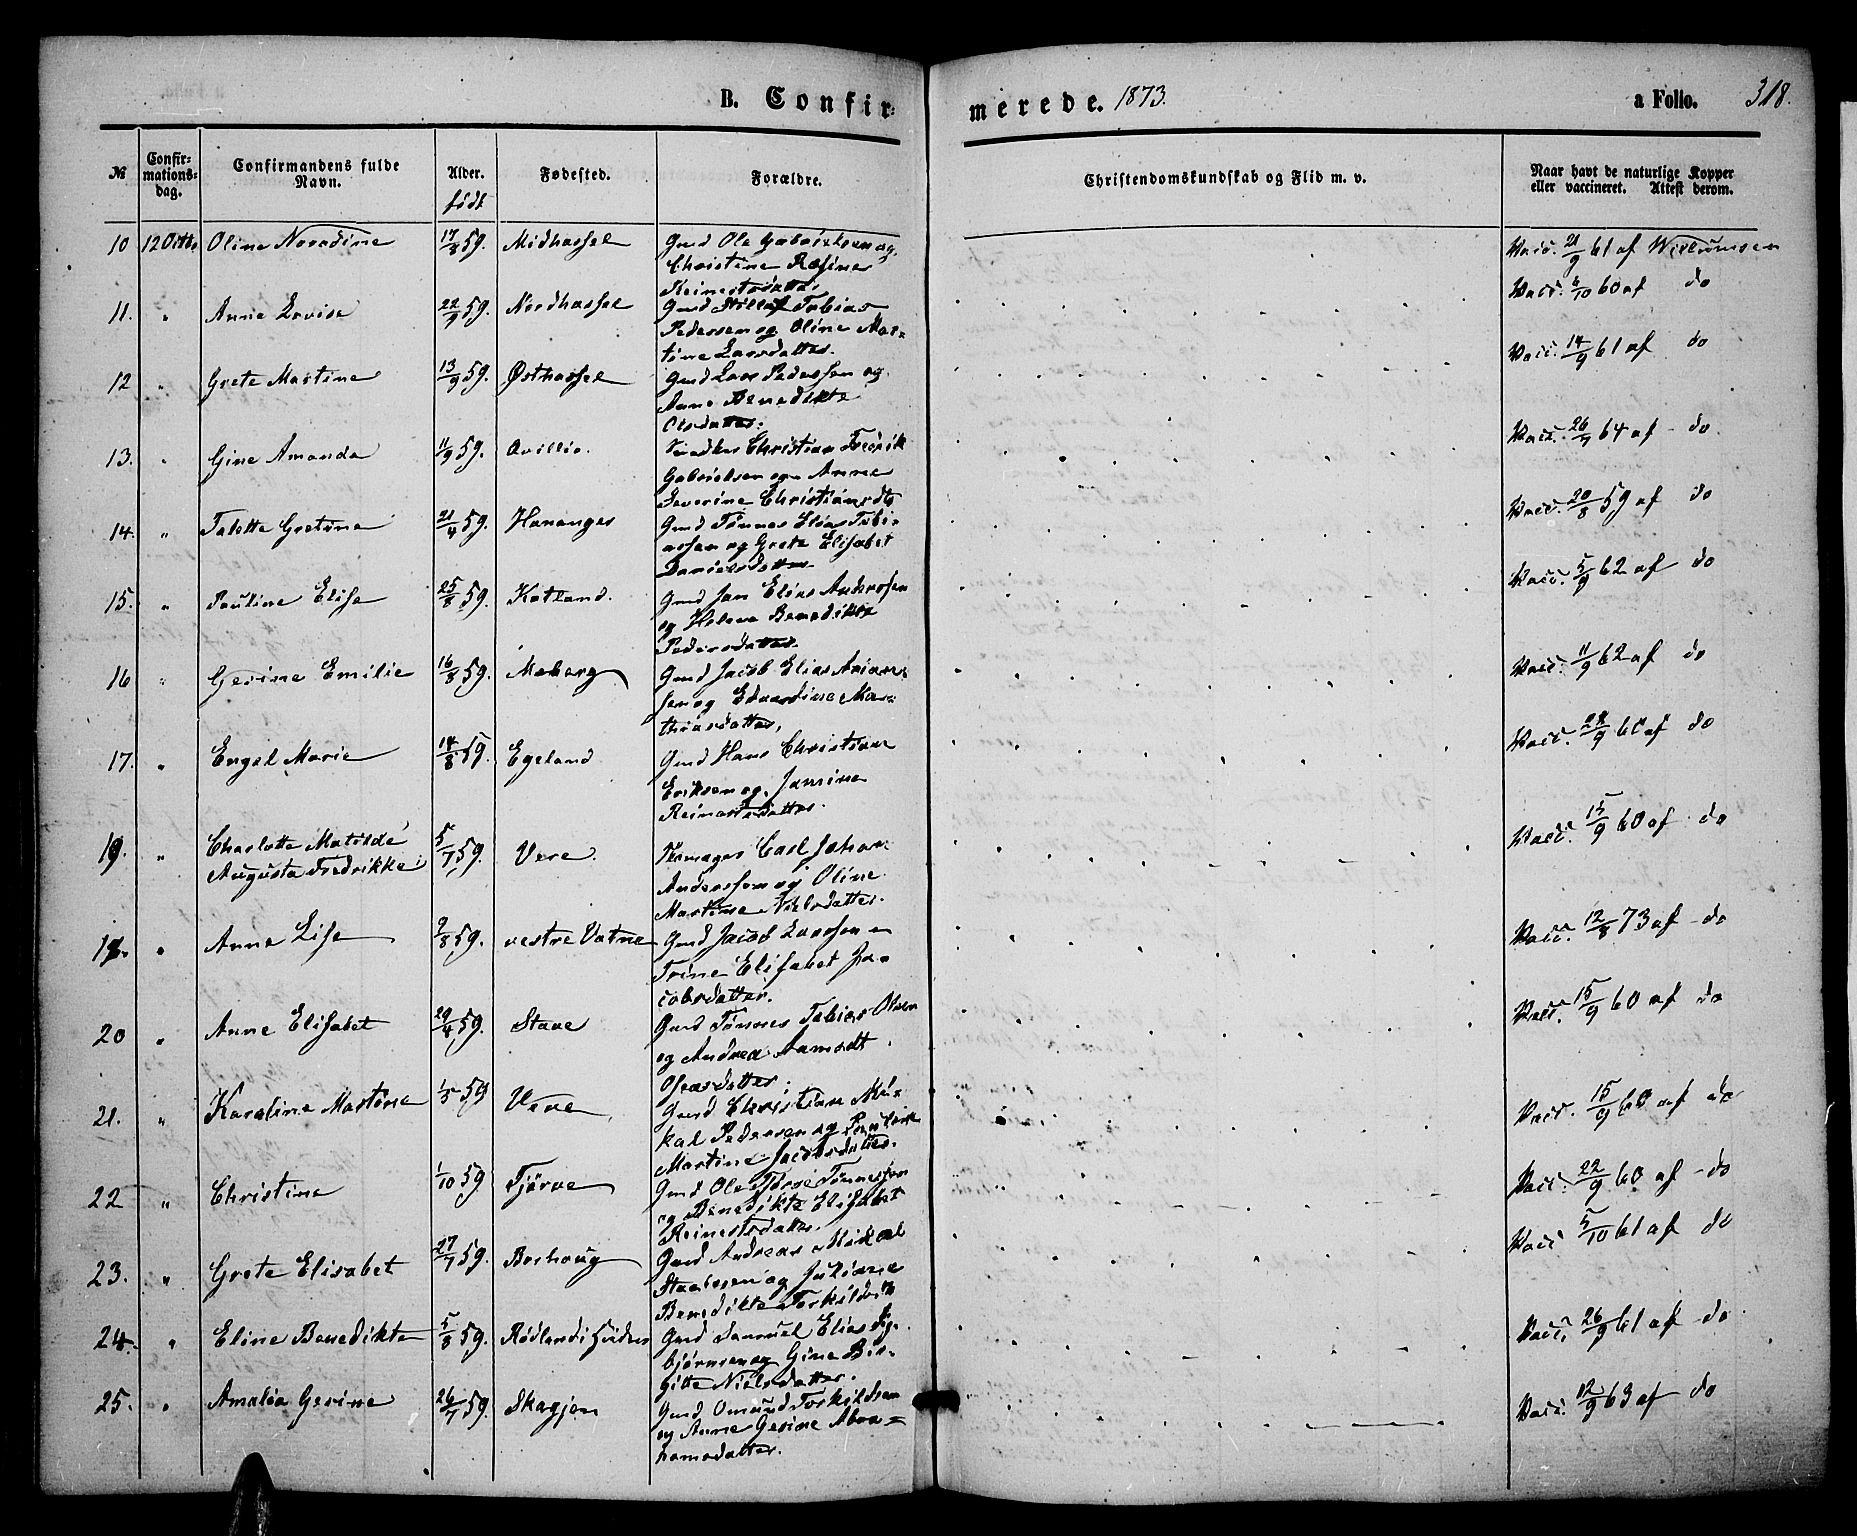 B. Confirmerede. 1873. a Folio. 318.
№ Confirmationsdag. Confirmandens fulde Navn. Alder. født Fødested. Forældre. Christendomskundskab og Flid m. v. Naar havt de naturlige Kopper eller vaccineret. Attest derom.
10 12 Octb. Oline Noradine 17/8 59. Midhassel Gmd Ole Gabrielsen og Vacc. 21/9 61 af Willumsen
Christine Rasine
Reinertsdatter
11. " Anne Lovise 22/9 59. Nordhassel Gmd Tobias Vacc. 6/10 60 af do
Pedersen og Oline Mar-
tine Larsdatter.
12 " Grete Martine 13/9 59. Østhassel Gmd Lars Pedersen og Vacc. 14/9 61 af do
Anne Benedikte
Olsdatter.
13. " Gine Amanda 11/9 59. Christian Fredrik Vacc. 26/7 64 af do
Gabrielsen og Anne
Severine Christiansdtr
14. " Talette Gretine 21/4 59. Hananger Gmd Tønnes Elias Tobi- Vacc. 20/8 59 af do
assen og Grete Elisabet
Danielsdatter
15. " Pauline Elise 25/8 59. Katland. Gmd Jan Elias Andersen Vacc. 5/9 62 af do
og Helene Benedikte
Pedersdatter.
16 " Gesine Emilie 16/8 59. Meberg Gmd Jacob Elias Arian- Vacc. 11/9 62 af do
sen og Edvardine Ma-
thiasdatter,
17. " Engel Marie 14/8 59. Egeland Gmd Hans Christian Vacc. 28/9 60 af do
Eriksen og Jamine
Reinertsdatter.
19. " Charlotte Matilde 5/7 59. Vere. Carl Johan Vacc. 15/9 60 af do
Augusta Fredrikke Anderssen og Oline
Martine Nielsdatter.
18. " Anne Lise 9/8 59. vestre Vatne Gmd Jacob Larssen o Vacc. 12/8 73 af do
Trine Elisabet Ja-
cobsdatter.
20 " Anne Elisabet 29/4 59. Stave Gmd Tønnes Tobias Olsen Vacc. 15/9 60 af do
og Andrea Aamodt
Oseasdatter.
21. " Karoline Martine 1/5 59 Vere Gmd Christian Mi- Vacc. 15/9 60 af do
kal Pedersen og Pauline
Martine Jacobsdatter.
22 " Christine 1/10 59 Tjørve Gmd Ole Tønnessen Vacc. 22/9 60 af do
og Benedikte Elisabet
Reinertsdatter.
23. " Grete Elisabet 27/7 59. Borhoug Gmd Andreas Mikal Vacc 5/10 61 af do
Staalesen og Juliane
Benedikte Torkildsdtr
24. " Eline Benedikte 5/8 59. Rødland i Hidre Gmd Samuel Elias Sig- Vacc. 26/9 61 af do
bjørnsen og Gine Bir-
gitte Nielsdatter.
25. " Amalia Gesine 26/7 59. Skagjen Gmd Omund Torkildsen Vacc. 12/9 63 af do
og Anne Gesine Abra-
hamsdatter.